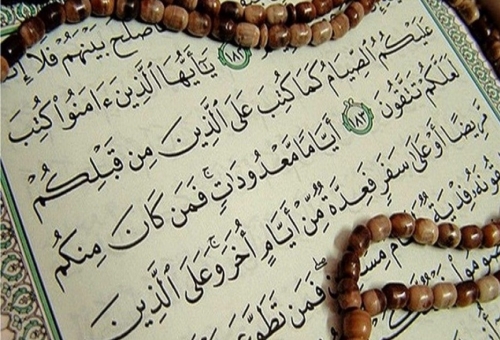 صلح بَيْنَهُمْ فَلَا
١٨٢ يَٰٓأَيُّهَا ٱلَّذِينَ ءَامَنُوا۟ كُتِبَ
عَلَيْكُمُ ٱلصِّيَامُ كَمَا كُتِبَ عَلَى ٱلَّذِينَ مِن قَبْلِكُمْ
لَعَلَّكُمْ تَتَّقُونَ ١٨٣ أَيَّامًا مَّعْدُودَٰتٍ ۚ فَمَن كَانَ مِنكُم
مَّرِيضًا أَوْ عَلَىٰ سَفَرٍ فَعِدَّةٌ مِّنْ أَيَّامٍ أُخَرَ ۚ وَعَلَى ٱلَّذِينَ
فِدْيَةٌ فَمَن تَطَوَّعَ